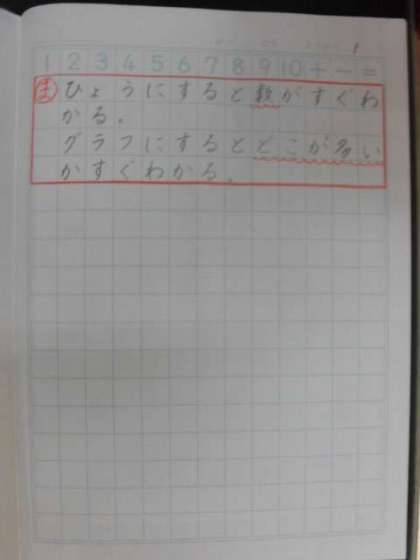 1 2 3 4 5 6 7 8 9 10 + - =
ま ひょうにすると数がすぐわ
かる。
グラフにするとどこが多い
かすぐわかる。